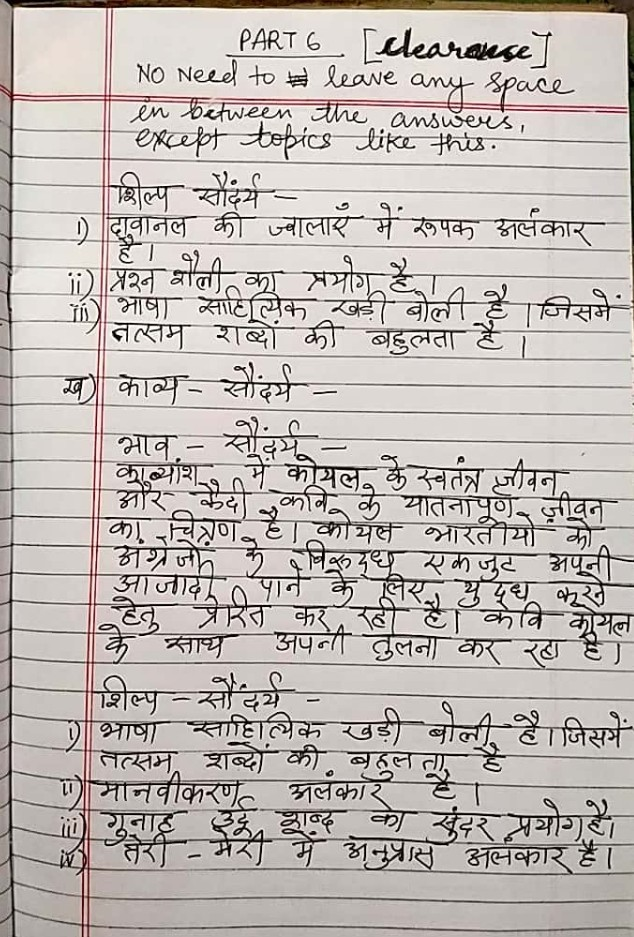 PART 6 [clearance]
No Need to leave any space
in between the answers,
except topics like this.
शिल्प सौंदर्य –
i) दावानल की ज्वालाएँ में रूपक अलंकार
है।
ii) प्रश्न शैली का प्रयोग है।
iii) भाषा साहित्यिक खड़ी बोली है। जिसमें
तत्सम शब्दों की बहुलता है।
ख) काव्य – सौंदर्य –
भाव – सौंदर्य –
काव्यांश में कोयल के स्वतंत्र जीवन
और कैदी कवि के यातनापूर्ण जीवन
का चित्रण है। कोयल भारतीयों को
अंग्रेजों के विरूद्ध एकजुट अपनी
आजादी पाने के लिए युद्ध करने
हेतु प्रेरित कर रही है। कवि कोयल
के साथ अपनी तुलना कर रहा है।
शिल्प – सौंदर्य –
i) भाषा साहित्यिक खड़ी बोली है। जिसमें
तत्सम शब्दों की बहुलता है
ii) मानवीकरण अलंकार है।
iii) गुनाह उर्दू शब्द का सुंदर प्रयोग है।
iv) तेरी – मेरी में अनुप्रास अलंकार है।